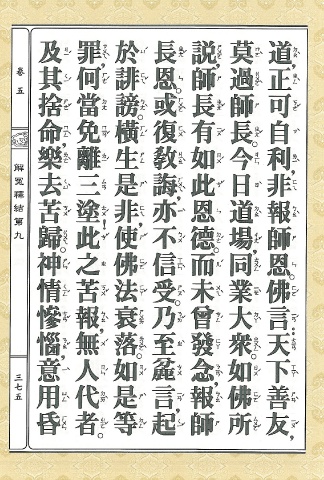 道,正可自利,非報師恩。佛言:天下善友,
莫過師長。今日道場,同業大衆。如佛所
說,師長有如此恩德。而未曾發念,報師
長恩。或復敎誨,亦不信受。乃至麁言,起
於誹謗。橫生是非,使佛法衰落。如是等
罪,何當免離三塗!此之苦報,無人代者。
及其捨命,樂去苦歸。神情慘惱,意用昏
卷五
解冤釋結第九
三七五